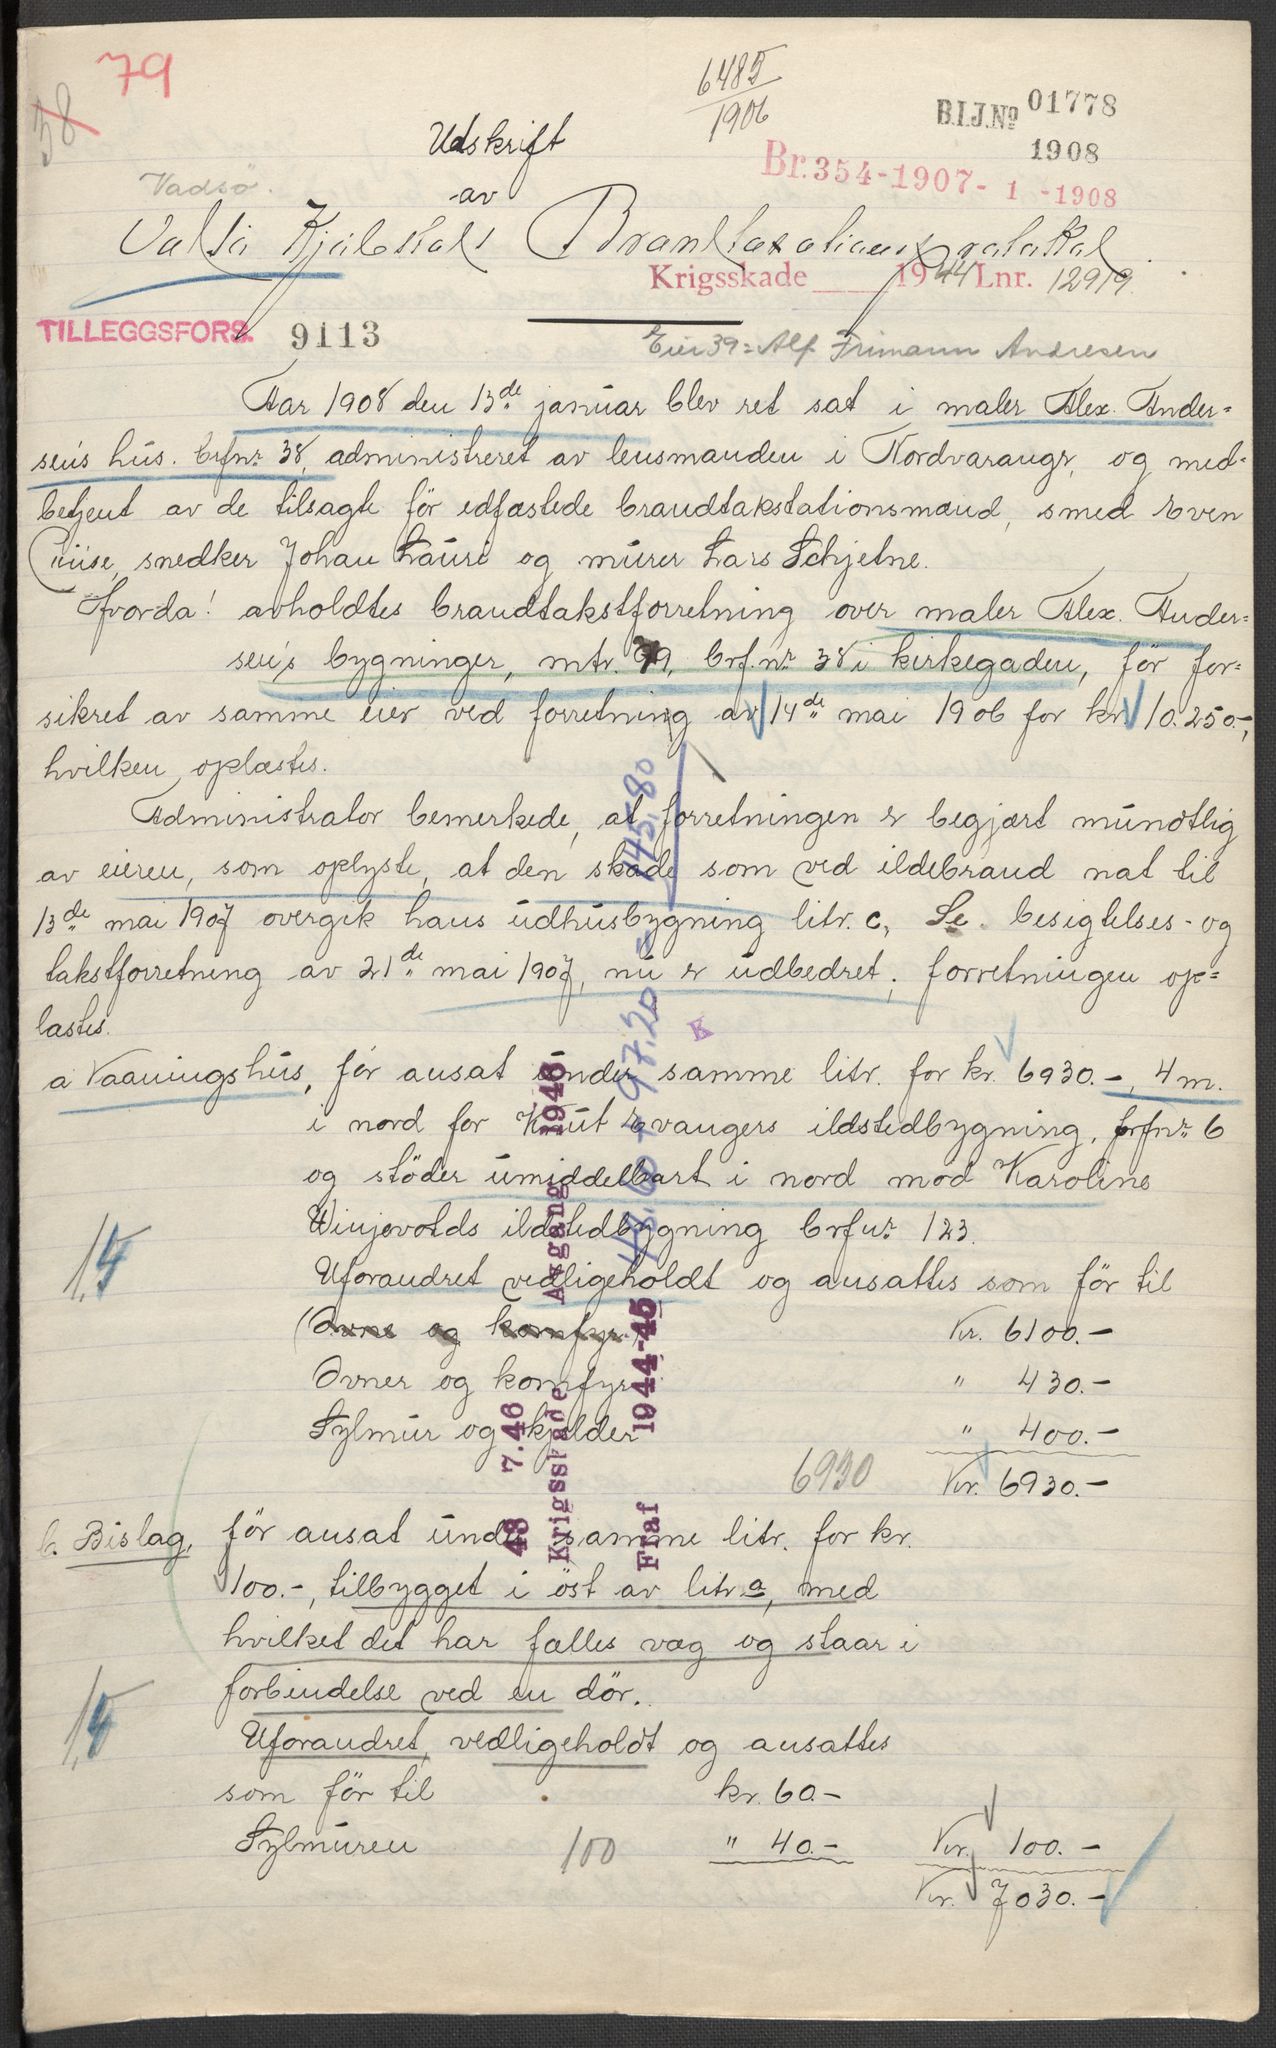 79
58
6485
1906
B.I.J.Nº 01778
1908
Udskrift
Br. 354-1907- 1 -1908
Vadsö.
av
Vadsö Kjøbstads Branntaxationsprotokol.
Krigsskade 1944 Lnr. 12919.
TILLEGGSFORS. 9113
Eier 39 = Alf Frimann Andresen
Aar 1908 den 13de januar blev ret sat i maler Alex. Ander=
sens hus. brfnr. 38, administreret av lensmanden i Nordvaranger, og med=
betjent av de tilsagte för edfæstede brandtakstationsmænd, smed Even
snedker Johan Lauri og murer Lars Schjetne.
Hvorda! avholdtes brandtakstforretning over maler Alex. Ander=
sen's bygninger, mtr. 79, brf.nr. 38 i kirkegaden, för for=
sikret av samme eier ved forretning av 14de mai 1906 for kr. 10.250.-,
hvilken oplæstes.
Administrator bemerkede, at forretningen er begjært mundtlig
av eieren, som oplyste, at den skade som ved ildebrand nat til
13de mai 1907 overgik hans udhusbygning litr. c, Se. besigtelses- og
takstforretning av 21de mai 1907, nu er udbedret; forretningen op=
læstes.
a Vaaningshus, för ansat under samme litr. for kr. 6930.-, 4 m.
i nord for Knut Evangers ildstedbygning, brfnr. 6
og stöder umiddelbart i nord mod Karoline
Winjevolds ildstedbygning brfnr. 123.
Uforandret vedligeholdt og ansattes som för til
1,5
(Ovne og komfyr) Kr. 6100.-
Ovner og komfyr " 430.-
Sylmur og kjelder " 400.-
6930 Kr. 6930.-
b. Bislag, för ansat under samme litr. for kr.
100.-, tilbygget i öst av litr. a, med
hvilket det har fælles væg og staar i
forbindelse ved en dör.
1,5
Uforandret, vedligeholdt og ansattes
som för til kr. 60.-
Sylmuren 100 " 40.- Kr. 100.-
Kr. 7030.-
48 7.46
Krigsskade Avgang 1946
Fraf 1944-45
48,60 + 97,20 = 145,80
K